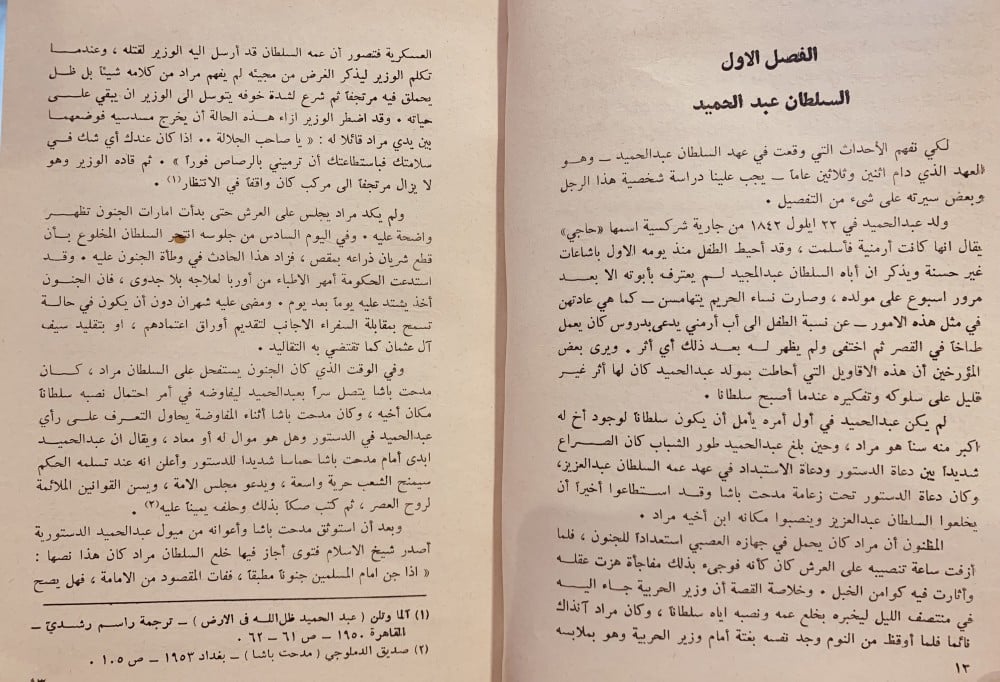 الفصل الاول
السلطان عبد الحميد
لكي نفهم الأحداث التي وقعت في عهد السلطان عبدالحميد ــ وهو
العهد الذي دام اثنين وثلاثين عاماً ــ يجب علينا دراسة شخصية هذا الرجل
وبعض سيرته على شىء من التفصيل .
ولد عبدالحميد في ٢٢ ايلول ١٨٤٢ من جارية شركسية اسمها «حاجي»
يقال انها كانت أرمنية فأسلمت ، وقد أحيط الطفل منذ يومه الاول باشاعات
غير حسنة ويذكر ان أباه السلطان عبدالمجيد لم يعترف بأبوته الا بعد
مرور اسبوع على مولده ، وصارت نساء الحريم يتهامسن ــ كما هي عادتهن
في مثل هذه الامور ــ عن نسبة الطفل الى أب أرمني يدعى بدروس كان يعمل
طباخاً في القصر ثم اختفى ولم يظهر له بعد ذلك أي أثر . ويرى بعض
المؤرخين أن هذه الاقاويل التي أحاطت بمولد عبدالحميد كان لها أثر غير
قليل على سلوكه وتفكيره عندما أصبح سلطانا .
لم يكن عبدالحميد في أول أمره يأمل أن يكون سلطاناً لوجود أخ له
اكبر منه سناً هو مراد ، وحين بلغ عبدالحميد طور الشباب كان الصراع
شديداً بين دعاة الدستور ودعاة الاستبداد في عهد عمه السلطان عبدالعزيز،
وكان دعاة الدستور تحت زعامة مدحت باشا وقد استطاعوا أخيراً أن
يخلعوا السلطان عبدالعزيز وينصبوا مكانه ابن أخيه مراد .
المظنون أن مراد كان يحمل في جهازه العصبي استعداداً للجنون ، فلما
أزفت ساعة تنصيبه على العرش كان كأنه فوجىء بذلك مفاجأة هزت عقله
وأثارت فيه كوامن الخبل . وخلاصة القصة أن وزير الحربية جاء اليه
في منتصف الليل ليخبره بخلع عمه ونصبه اياه سلطاناً ، وكان مراد آنذاك
نائما فلما أوقظ من النوم وجد نفسه بغتة أمام وزير الحربية وهو بملابسه
١٢
العسكرية فتصور أن عمه السلطان قد أرسل اليه الوزير لقتله ، وعندما
تكلم الوزير ليذكر الغرض من مجيئه لم يفهم مراد من كلامه شيئاً بل ظل
يحملق فيه مرتجفاً ثم شرع لشدة خوفه يتوسل الى الوزير ان يبقي على
حياته . وقد اضطر الوزير ازاء هذه الحالة أن يخرج مسدسيه فوضعهما
بين يدي مراد قائلا له : « يا صاحب الجلالة .. اذا كان عندك أي شك في
سلامتك فباستطاعتك أن ترميني بالرصاص فوراً » . ثم قاده الوزير وهو
لا يزال مرتجفاً الى مركب كان واقفاً في الانتظار(١) .
ولم يكد مراد يجلس على العرش حتى بدأت امارات الجنون تظهر
واضحة عليه . وفي اليوم السادس من جلوسه انتحر السلطان المخلوع بأن
قطع شريان ذراعه بمقص ، فزاد هذا الحادث في وطأة الجنون عليه . وقد
استدعت الحكومة أمهر الأطباء من أوربا لعلاجه بلا جدوى ، فان الجنون
أخذ يشتد عليه يوماً بعد يوم . ومضى عليه شهران دون أن يكون في حالة
تسمح بمقابلة السفراء الاجانب لتقديم أوراق اعتمادهم ، او بتقليد سيف
آل عثمان كما تقتضي به التقاليد .
وفي الوقت الذي كان الجنون يستفحل على السلطان مراد ، كان
مدحت باشا يتصل سراً بعبدالحميد ليفاوضه في أمر احتمال نصبه سلطاناً
مكان أخيه ، وكان مدحت باشا أثناء المفاوضة يحاول التعرف على رأي
عبدالحميد في الدستور وهل هو موال له أو معاد ، ويقال ان عبدالحميد
ابدى أمام مدحت باشا حماسا شديدا للدستور وأعلن انه عند تسلمه الحكم
سيمنح الشعب حرية واسعة ، ويدعو مجلس الامة ، ويسن القوانين الملائمة
لروح العصر ، ثم كتب صكاً بذلك وحلفه يميناً عليه(٢) .
وبعد أن استوثق مدحت باشا وأعوانه من ميول عبدالحميد الدستورية
أصدر شيخ الاسلام فتوى أجاز فيها خلع السلطان مراد كان هذا نصها :
« اذا جن امام المسلمين جنوناً مطبقاً ، ففات المقصود من الامامة ، فهل يصح
(١) آلما وتلن ( عبد الحميد ظل الله في الارض ) ــ ترجمة راسم رشدي ــ
القاهرة ١٩٥٠ ــ ص ٦١ ــ ٦٢ .
(٢) صديق الدملوجي ( مدحت باشا ) ــ بغداد ١٩٥٣ ــ ص ١٠٥ .